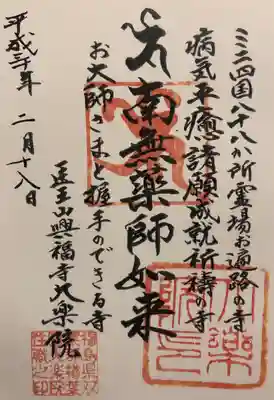 ミニ四国八十八か所霊場お遍路の寺
病気平癒諸願成就祈禱の寺
南無薬師如来
お大師さまと握手のできる寺
医王山興福寺大楽院
平成三十年 二月十八日